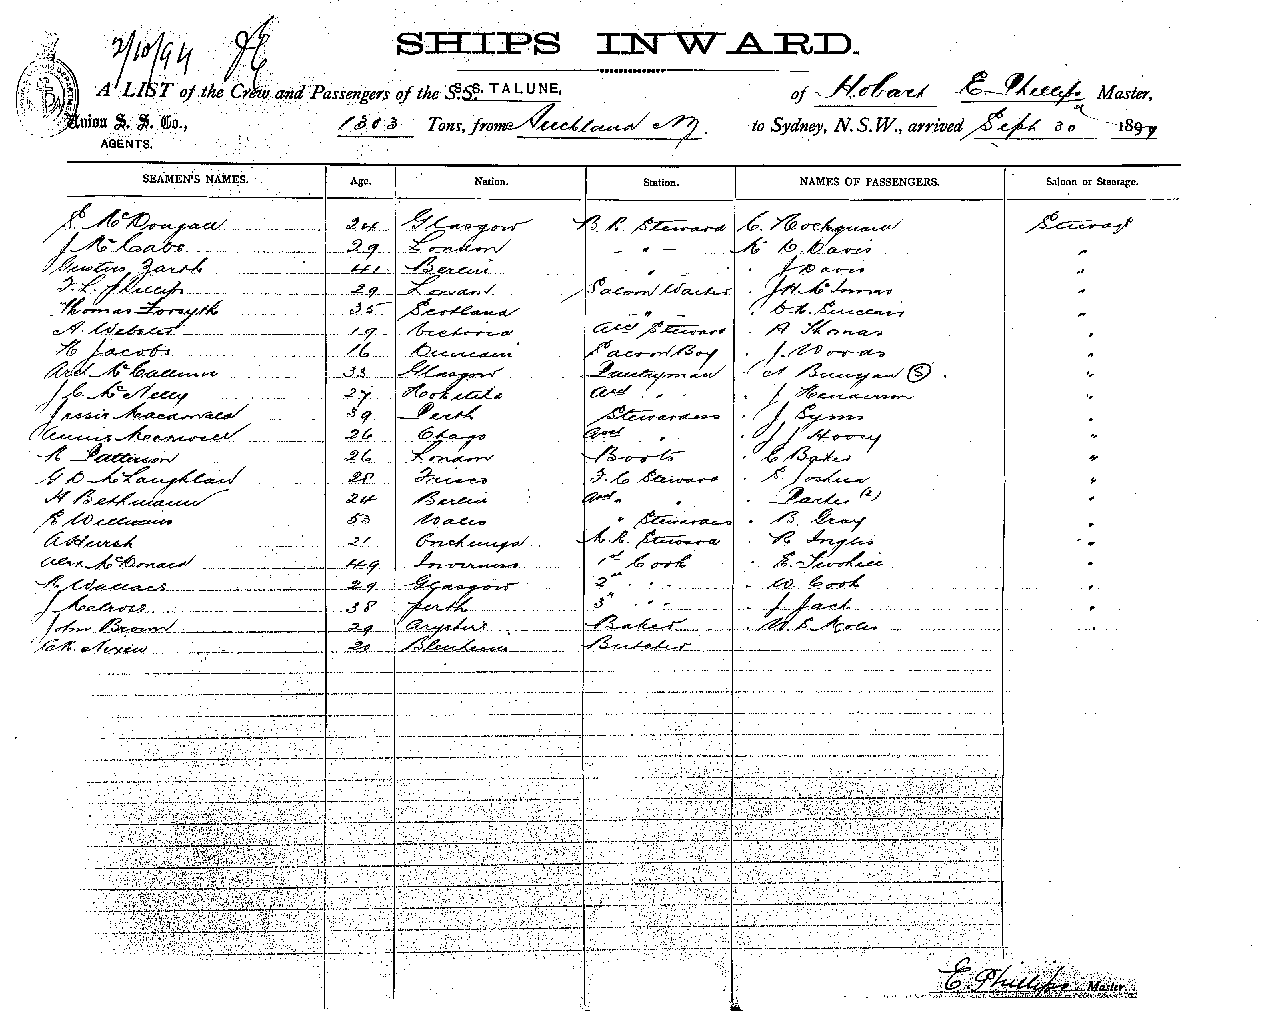 2/10/94
SHIPS INWARD.
A LIST of the Crew and Passengers of the S.S. TALUNE, of Hobart E. Phillips Master,
Union S. S. Co., 1303 Tons, from Auckland NZ. to Sydney, N.S.W., arrived Sept 30th 1894
AGENTS.
SEAMEN'S NAMES. Age. Nation. Station. NAMES OF PASSENGERS. Saloon or Steerage.
McDougall 24 Glasgow B. R. Steward C. Steerage
J McCabe 29 London " K D. Davis "
41 Berlin " J Davis "
Phillips 29 London Saloon Waiter "
Thomas Forsyth 35 Scotland " Sinclair "
A. Webster 19 Victoria Steward A Thomas "
H Jacobs 16 Dunedin Saloon Boy J. Woods "
McCallum 33 Glasgow Pantryman A Bunyan (S) "
J C McNelly 27 Hokitika " J Henderson "
Jessie Macdonald 39 Perth Stewardess J Syms "
Annie 26 Otago " J J "
R Pattison 26 London Boots C Baker "
G D McLaughlan 28 Frisco F. C Steward S. Joshua "
H Bethmann 24 Berlin " " Parker (2) "
E Williams 53 Wales " Stewardess B. Gray "
A Hursh 21 Onehunga Steward R Inglis "
Alex McDonald 49 Inverness 1st Cook E. "
R Wallace 29 Glasgow 2nd " W. Cook "
J Melrose 38 Perth 3rd " J Jack "
John Brown 29 Baker "
20 Blenheim Butcher
E. Phillips Master.